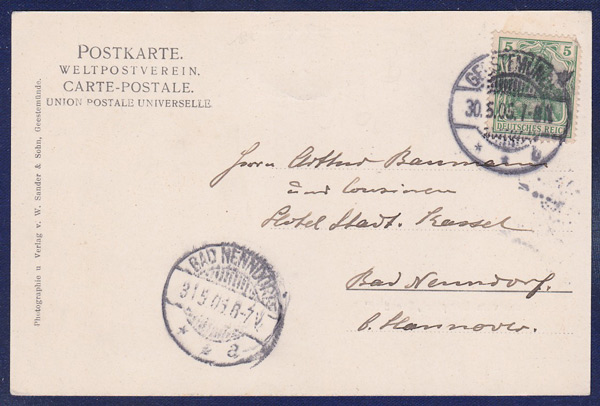 POSTKARTE.
WELTPOSTVEREIN.
CARTE-POSTALE.
UNION POSTALE UNIVERSELLE
5 5
DEUTSCHES REICH
GEESTEMÜNDE
30.5.05.7-8N.
* * b
Herrn Arthur Baumann
und Cousinen
Hotel Stadt Kassel
Bad Nenndorf.
b. Hannover.
BAD NENNDORF
31.5.05.6-7V.
* * a
Photographie u Verlag v. W. Sander & Sohn, Geestemünde.